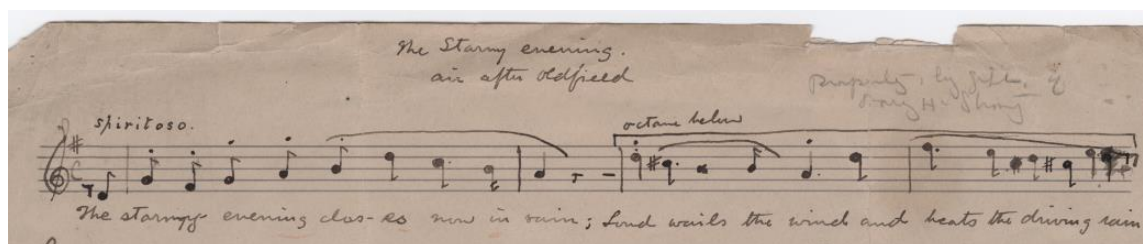 The Stormy evening.
air after oldfield
property, by gift, of
spiritoso.
octave below
The stormy evening clos-es now in vain; Loud wails the wind and beats the driving rain